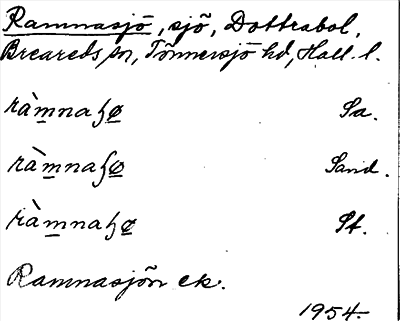 Ramnasjö, sjö, Dottrabol,
Breareds sn, Tönnersjö hd, Hall. l.
ràmnaꜧø Sa.
ràmnaꜧø Sand.
ràmnaꜧø St.
Ramnasjön ek.
1954.